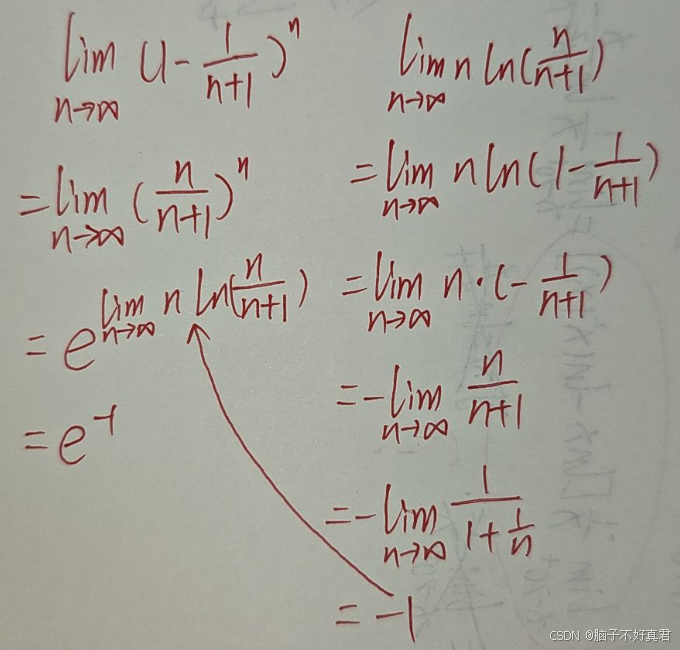 lim_{n→∞} (1 - 1/(n+1))^n
= lim_{n→∞} (n/(n+1))^n
= e^{lim_{n→∞} n ln(n/(n+1))}
= e^{-1}
lim_{n→∞} n ln(n/(n+1))
= lim_{n→∞} n ln(1 - 1/(n+1))
= lim_{n→∞} n · (- 1/(n+1))
= - lim_{n→∞} n/(n+1)
= - lim_{n→∞} 1/(1 + 1/n)
= -1
CSDN @脑子不好真君